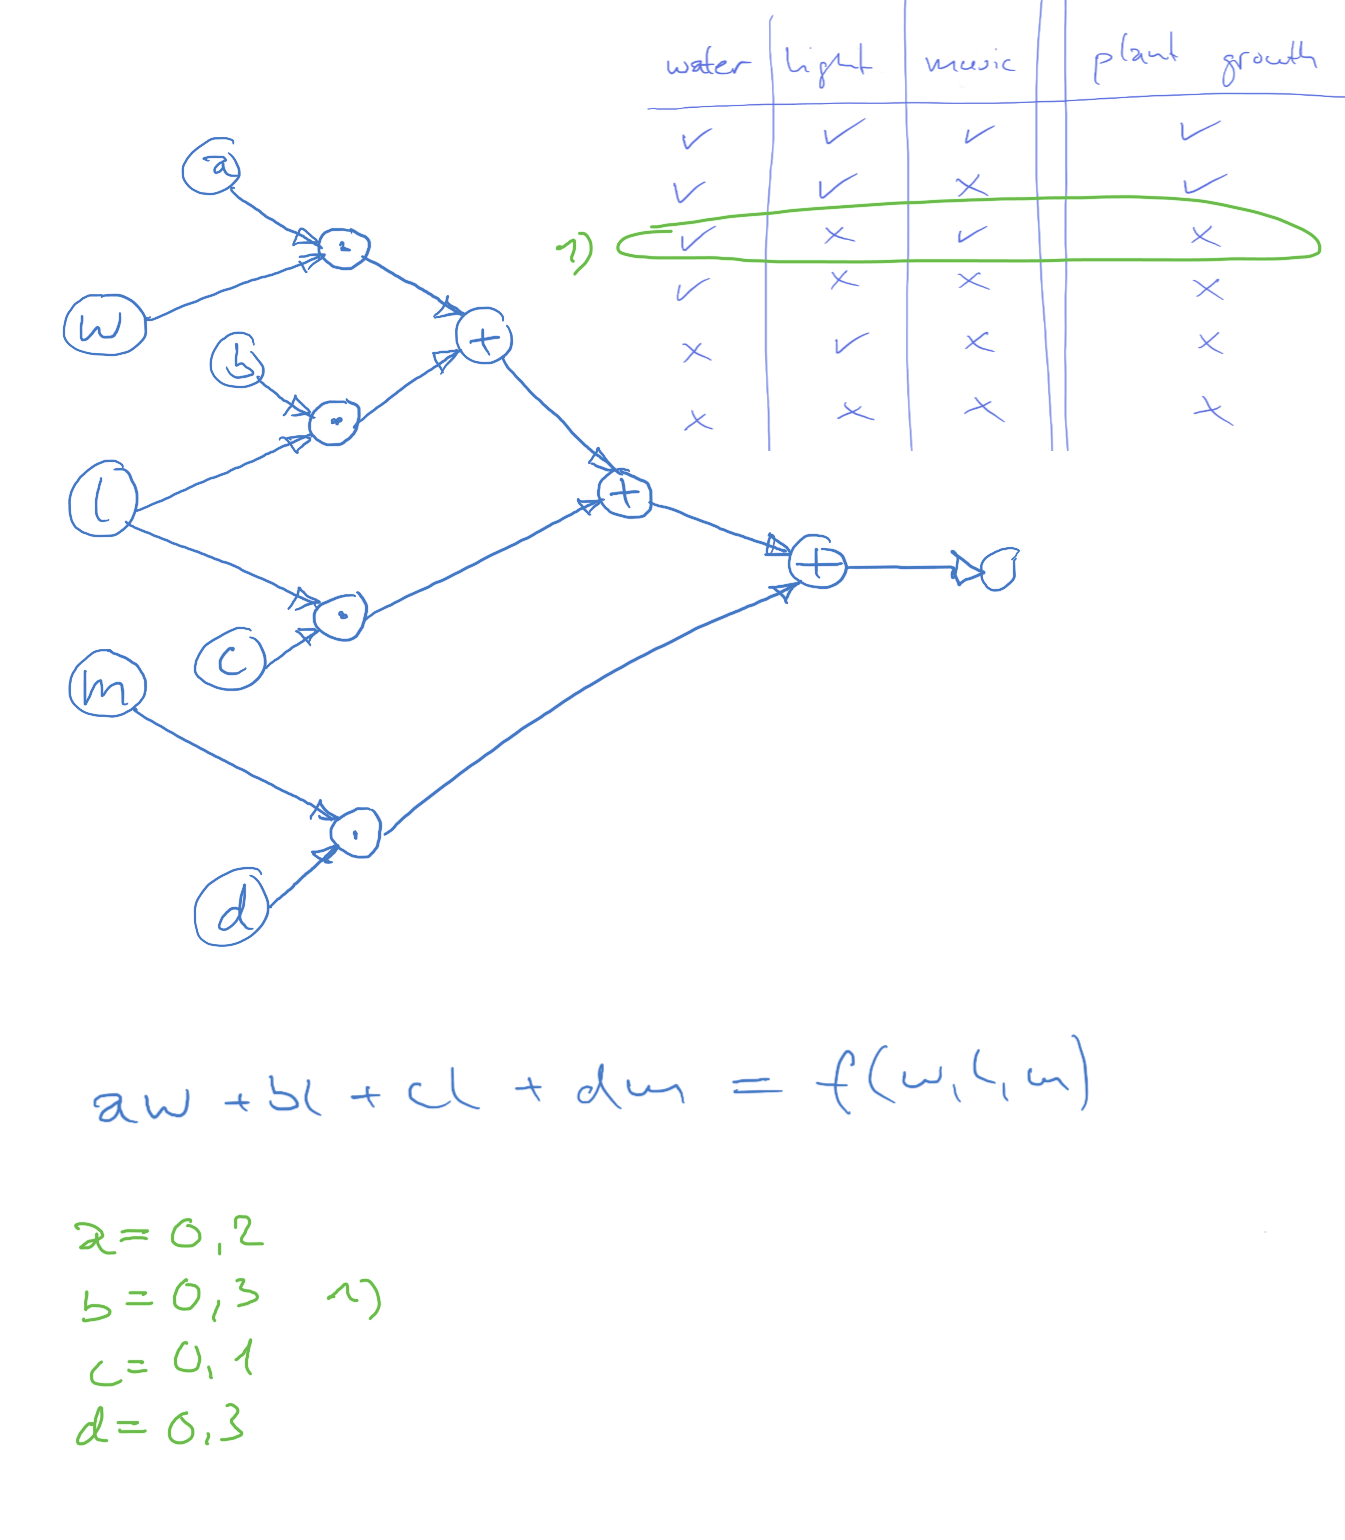 water light music plant growth
✓ ✓ ✓ ✓
✓ ✓ × ✓
1) ✓ × ✓ ×
✓ × × ×
× ✓ × ×
× × × ×
a
·
w
+
b
·
l
+
+
·
c
m
·
d
aw + bl + cl + dm = f(w, l, m)
a = 0,2
b = 0,3 1)
c = 0,1
d = 0,3